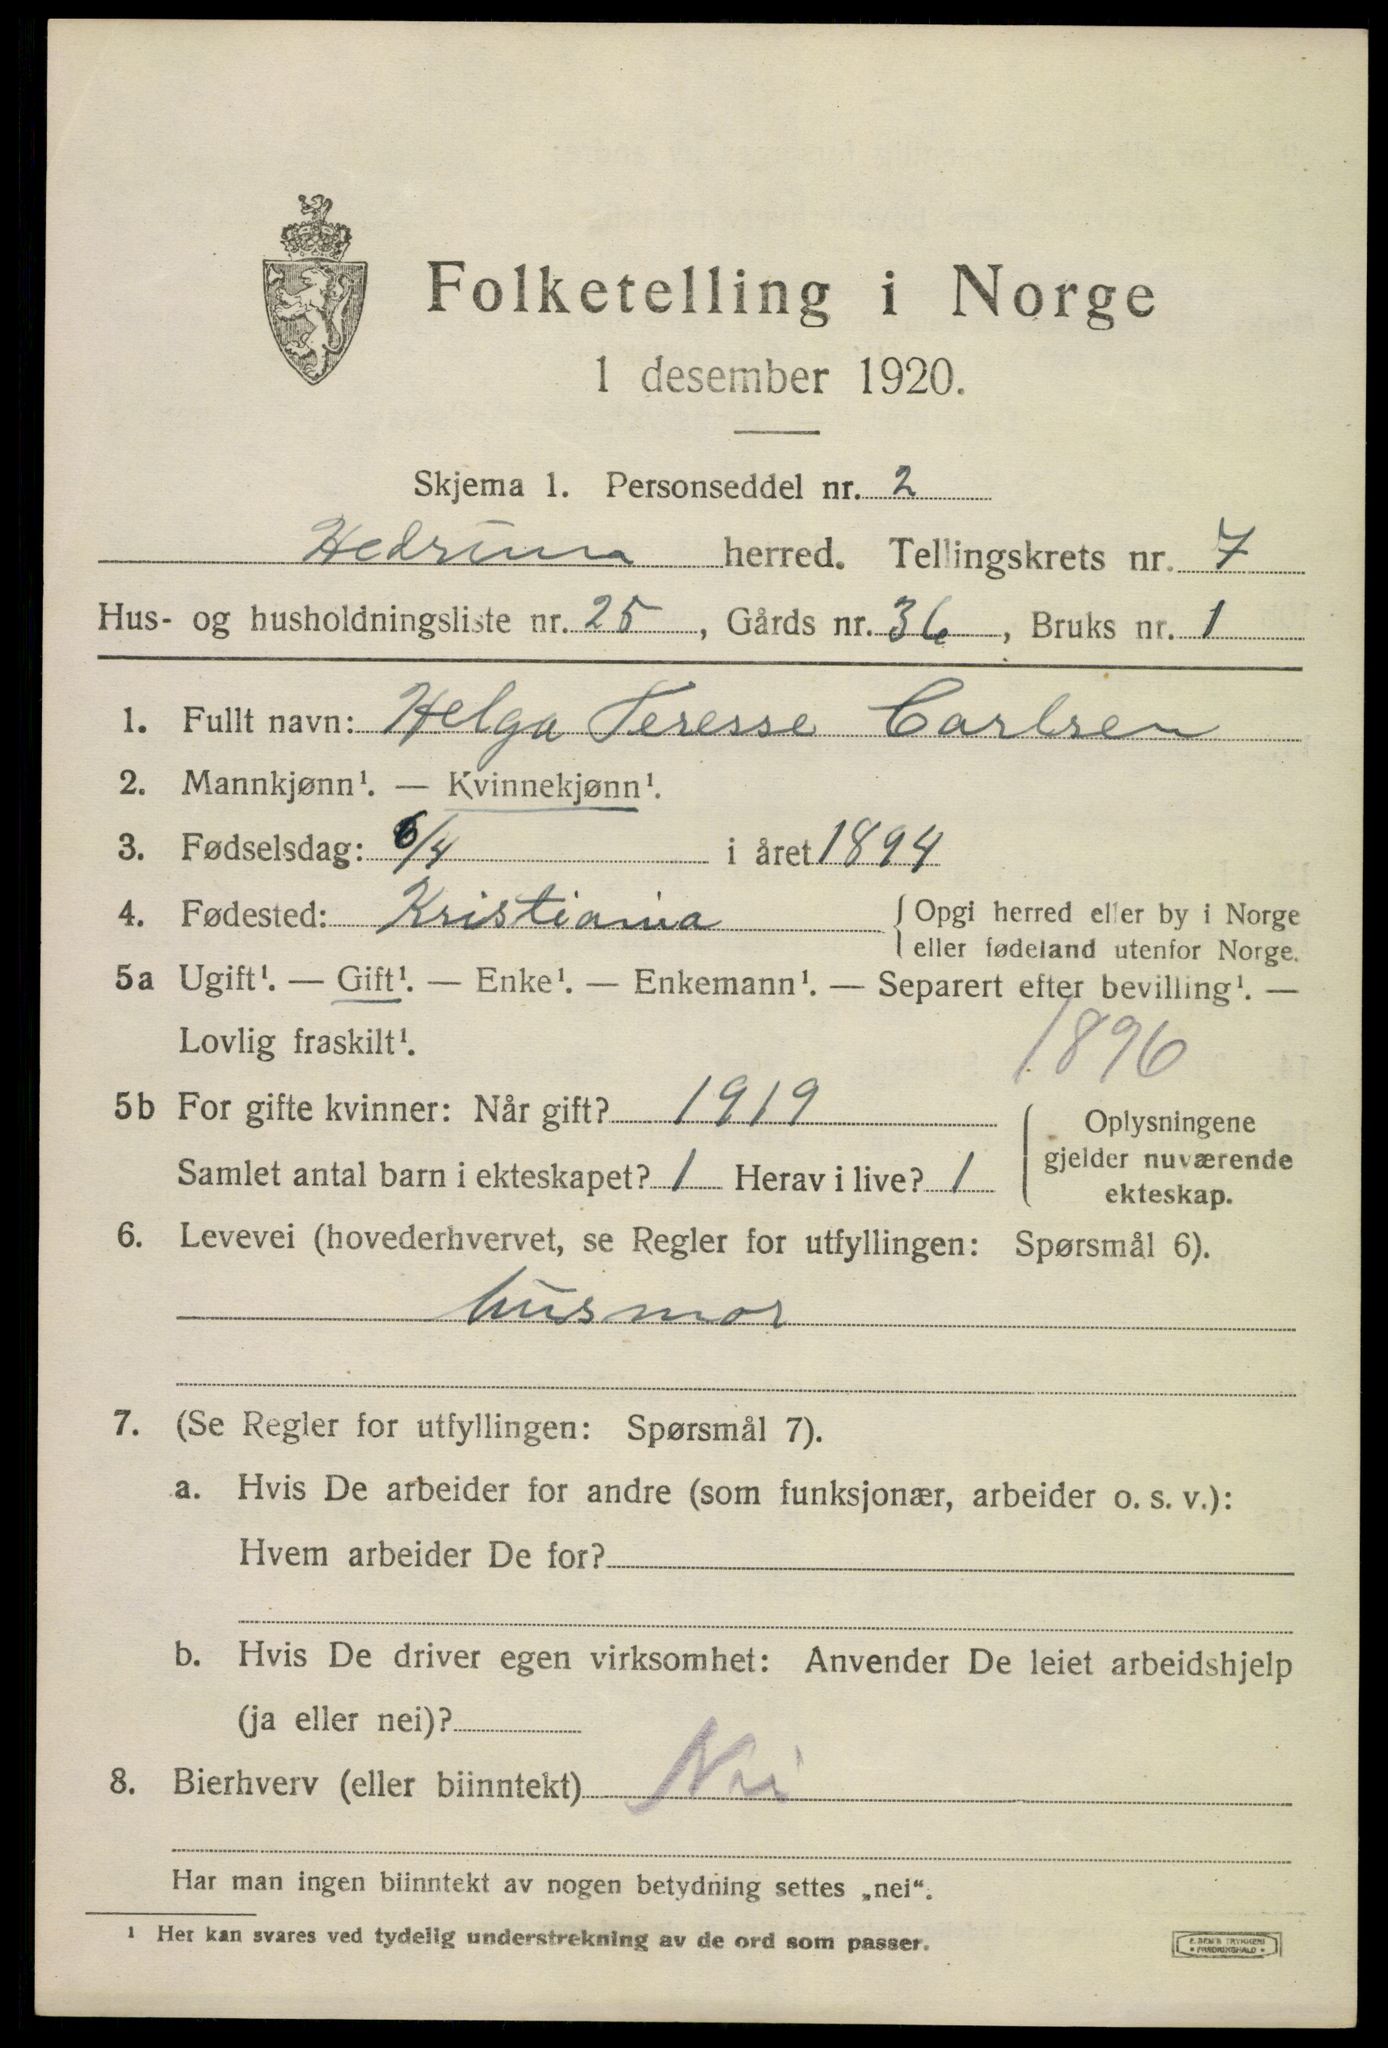 Folketelling i Norge
1 desember 1920.
Skjema 1. Personseddel nr. 2
Hedrum herred. Tellingskrets nr. 7
Hus- og husholdningsliste nr. 25, Gårds nr. 36, Bruks nr. 1
1. Fullt navn: Helga Teresse Carlsen
2. Mannkjønn¹. — Kvinnekjønn¹.
3. Fødselsdag: 6/4 i året 1894
4. Fødested: Kristiania { Opgi herred eller by i Norge
eller fødeland utenfor Norge.
5a Ugift¹. — Gift¹. — Enke¹. — Enkemann¹. — Separert efter bevilling¹. —
Lovlig fraskilt¹. 1896
5b For gifte kvinner: Når gift? 1919
Samlet antal barn i ekteskapet? 1 Herav i live? 1
Oplysningene
gjelder nuværende
ekteskap.
6. Levevei (hovederhvervet, se Regler for utfyllingen: Spørsmål 6).
husmor
7. (Se Regler for utfyllingen: Spørsmål 7).
a. Hvis De arbeider for andre (som funksjonær, arbeider o. s. v.):
Hvem arbeider De for?
b. Hvis De driver egen virksomhet: Anvender De leiet arbeidshjelp
(ja eller nei)?
8. Bierhverv (eller biinntekt) Nei
Har man ingen biinntekt av nogen betydning settes „nei“.
¹ Her kan svares ved tydelig understrekning av de ord som passer.
E. SEM'S TRYKKERI
• FREDRIKSHALD •